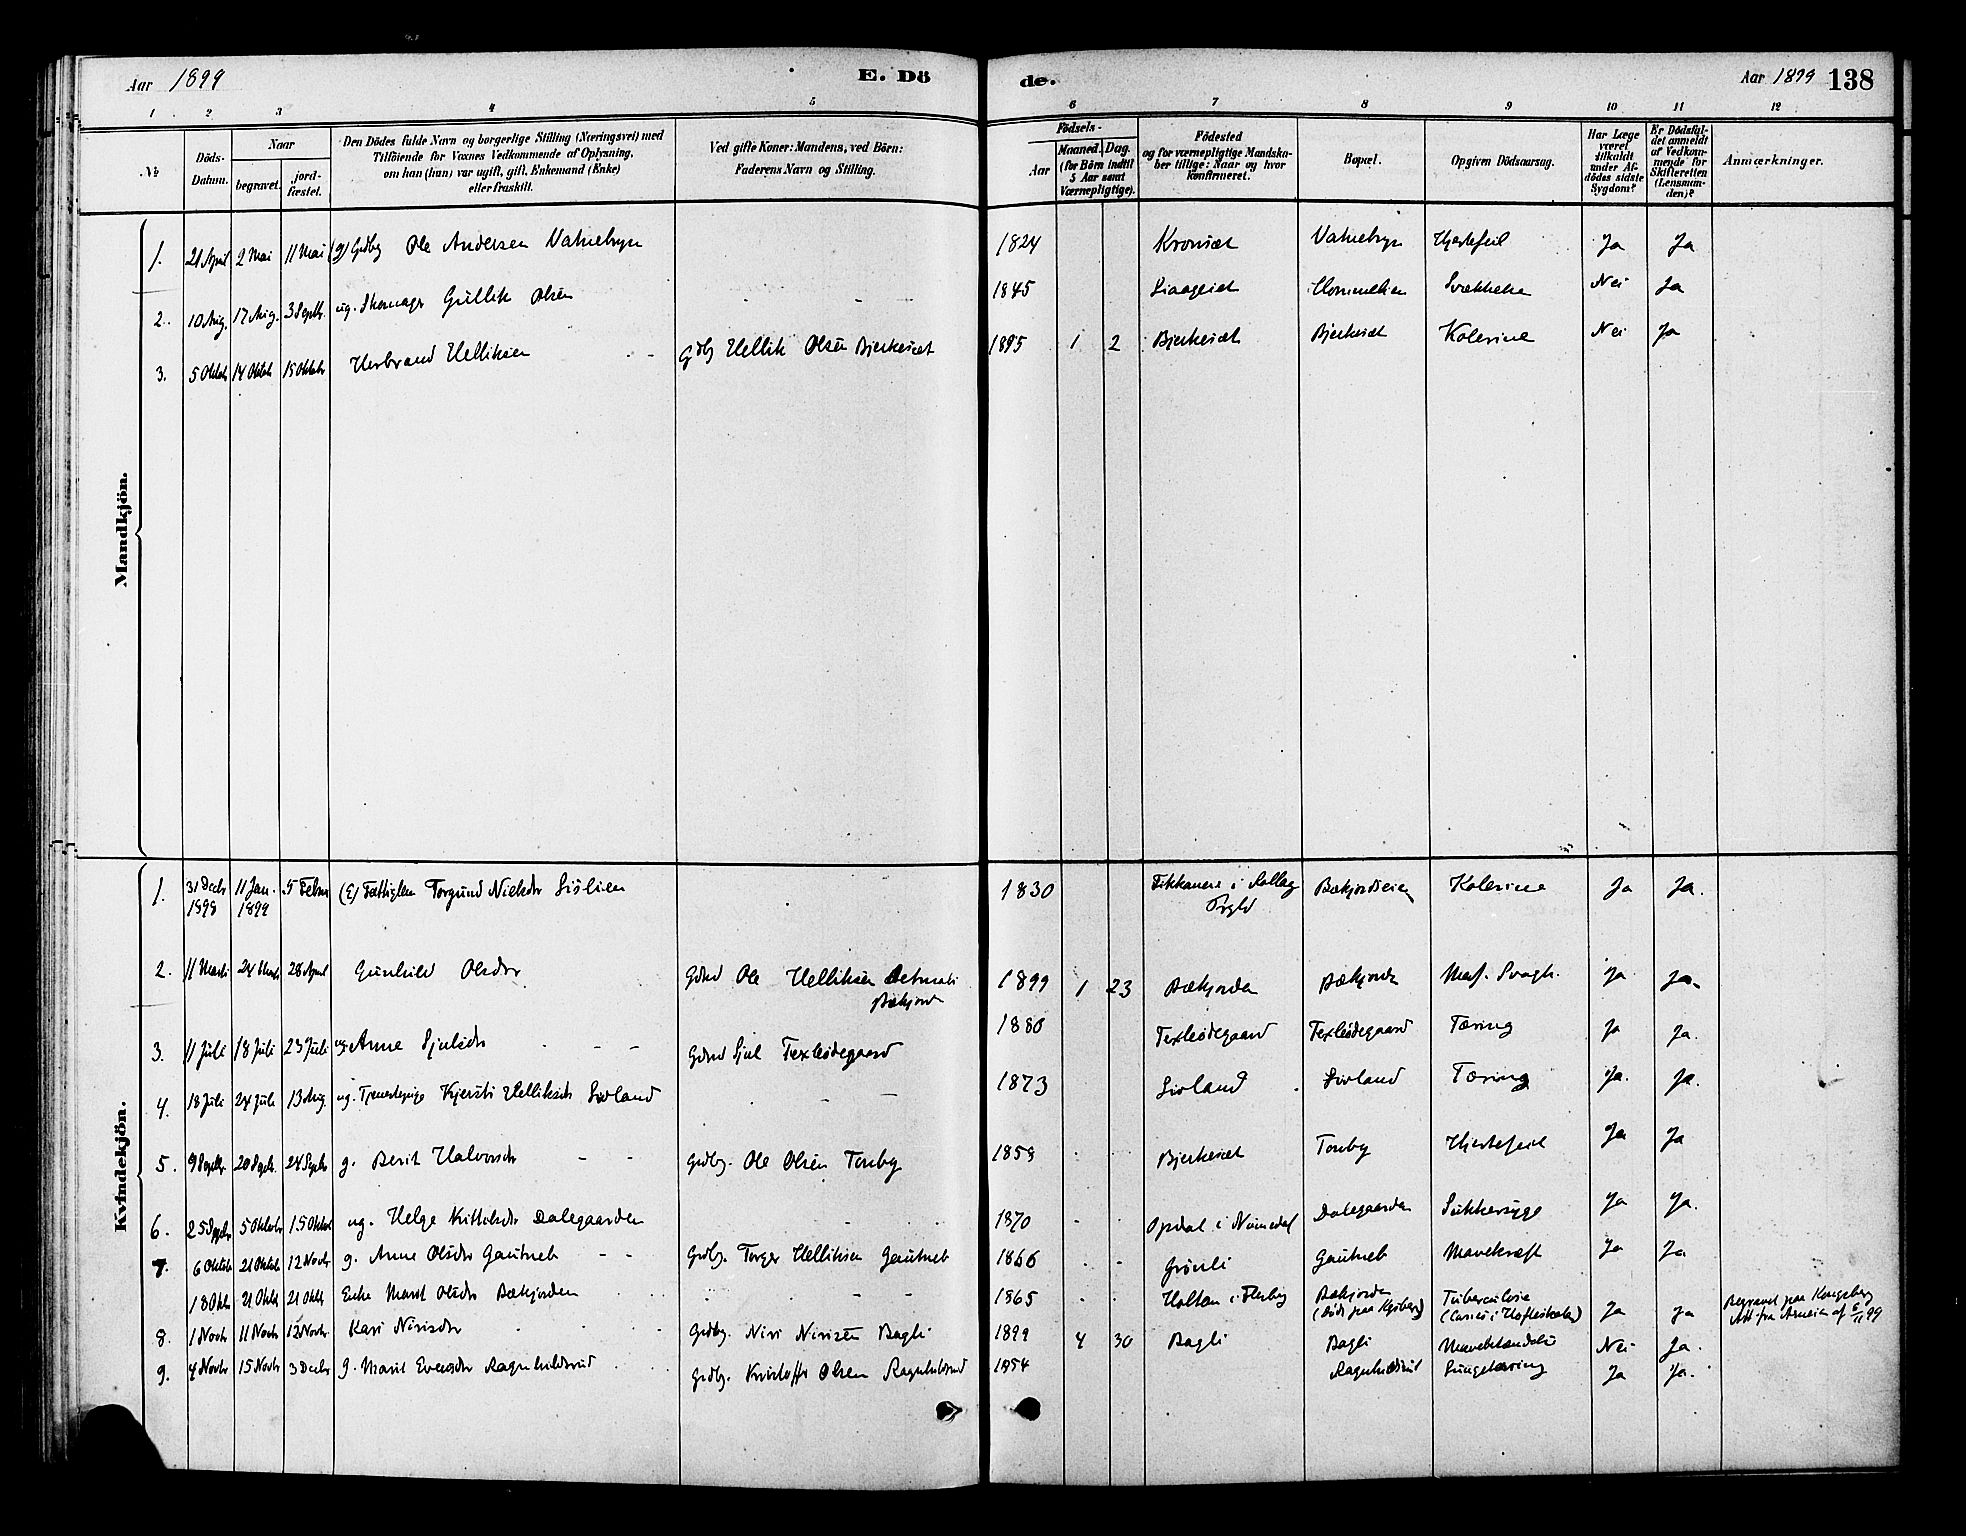 Aar 1899
E. Dö
de.
Aar 1899 138
1 2 3 4 5 6 7 8 9 10 11 12
№
Döds-
Datum.
Naar
begravet.
jord-
fæstet.
Den Dödes fulde Navn og borgerlige Stilling (Næringsvei) med
Tilföiende for Voxnes Vedkommende af Oplysning,
om han (hun) var ugift, gift, Enkemand (Enke)
eller fraskilt.
Ved gifte Koner: Mandens, ved Börn:
Faderens Navn og Stilling.
Födsels-
Aar
Maaned. Dag.
(for Börn indtil
5 Aar samt
Værnepligtige).
Födested
og for værnepligtige Mandska-
ber tillige: Naar og hvor
konfirmeret.
Bopæl.
Opgiven Dödsaarsag.
Har Læge
været
tilkaldt
under Af-
dödes sidste
Sygdom?
Er Dödsfal-
det anmeldt
af Vedkom-
mende for
Skifteretten
(Lensman-
den)?
Anmærkninger.
Mandkjön.
1. 21 April 2 Mai 11 Mai (g) Grdbg Ole Andersen Vatnebryn 1824 Vatnebryn Hjertefeil Ja Ja
2. 10 Aug. 17 Aug. 3 Septbr. ug. Skomager Gullik Olsen - - 1845 Nei Ja
3. 5 Oktobr 14 Oktobr 15 Oktobr Herbrand Helliksen - - Gdbg Hellik Olsen Bjerkesæt 1895 1 2 Bjerkesæt Bjerkesæt Kolerine Nei Ja
Kvindekjön.
1. 31 Decbr 11 Jan. 5 Febru (E) Fattiglem Torgund Nielsdr Liölien 1830 i Rollag Kolerine Ja Ja.
1898 1899 Prgld
2. 11 Marts 24 Marts 28 April Gunhild Olsdr Gdmd Ole Helliksen 1899 1 23 Bækjorden Bækjorden Medf. Svagh. Ja Ja.
Bækjord
3. 11 Juli 18 Juli 23 Juli ug. Anne Sjulsdr - - - Gdmd Sjul Texleödegaard 1880 Texleödegaard Texleödegaard Tæring Ja Ja.
4. 18 Juli 24 Juli 13 Aug. ug. Tjenestepige Kjersti Helliksdr Livland - - 1873 Livland Livland Tæring Ja. Ja.
5. 9 Septbr. 20 Septb. 24 Septbr g. Berit Halvorsdr - - Grdbg. Ole Olsen Touby 1859 Bjerkesæt Touby Hjertefeil Ja Ja
6. 25 Septbr. 5 Oktobr 15 Oktobr ug. Helge Kittelsdr Dalegaarden - - 1870 - - Opdal i Numedal Dalegaarden Sukkersyge Ja Ja.
7. 6 Oktobr 21 Oktobr 12 Novbr g. Anne Olsdr Gautneb - - Grdbg. Torger Helliksen Gautneb 1866 - - Grönli Gautneb Mavekræft Ja Ja
18 Oktbr 21 Oktbr 21 Oktbr Enke Marit Olsdr Bækjorden - - - - - 1865 Holtan i Flesberg Bækjorden Tuberculose Ja Ja Begravet paa Kongsberg
(död paa Kgsberg) (Caries i Hofteskaalen) Att fra Arneien af 6/11 99
8. 1 Novbr 11 Novbr 12 Novbr. Kari Nirisdr - - Grdbg. Niri Nirisen Bagli 1899 4 30 Bagli Bagli Nei Ja.
9. 4 Novbr 15 Novbr 3 Decbr g. Marit Evensdr Ragnhildsrud - - Grdbg. Kristoffer Olsen Ragnhildsrud 1854 Ragnhildsrud Lungetæring Ja Ja.